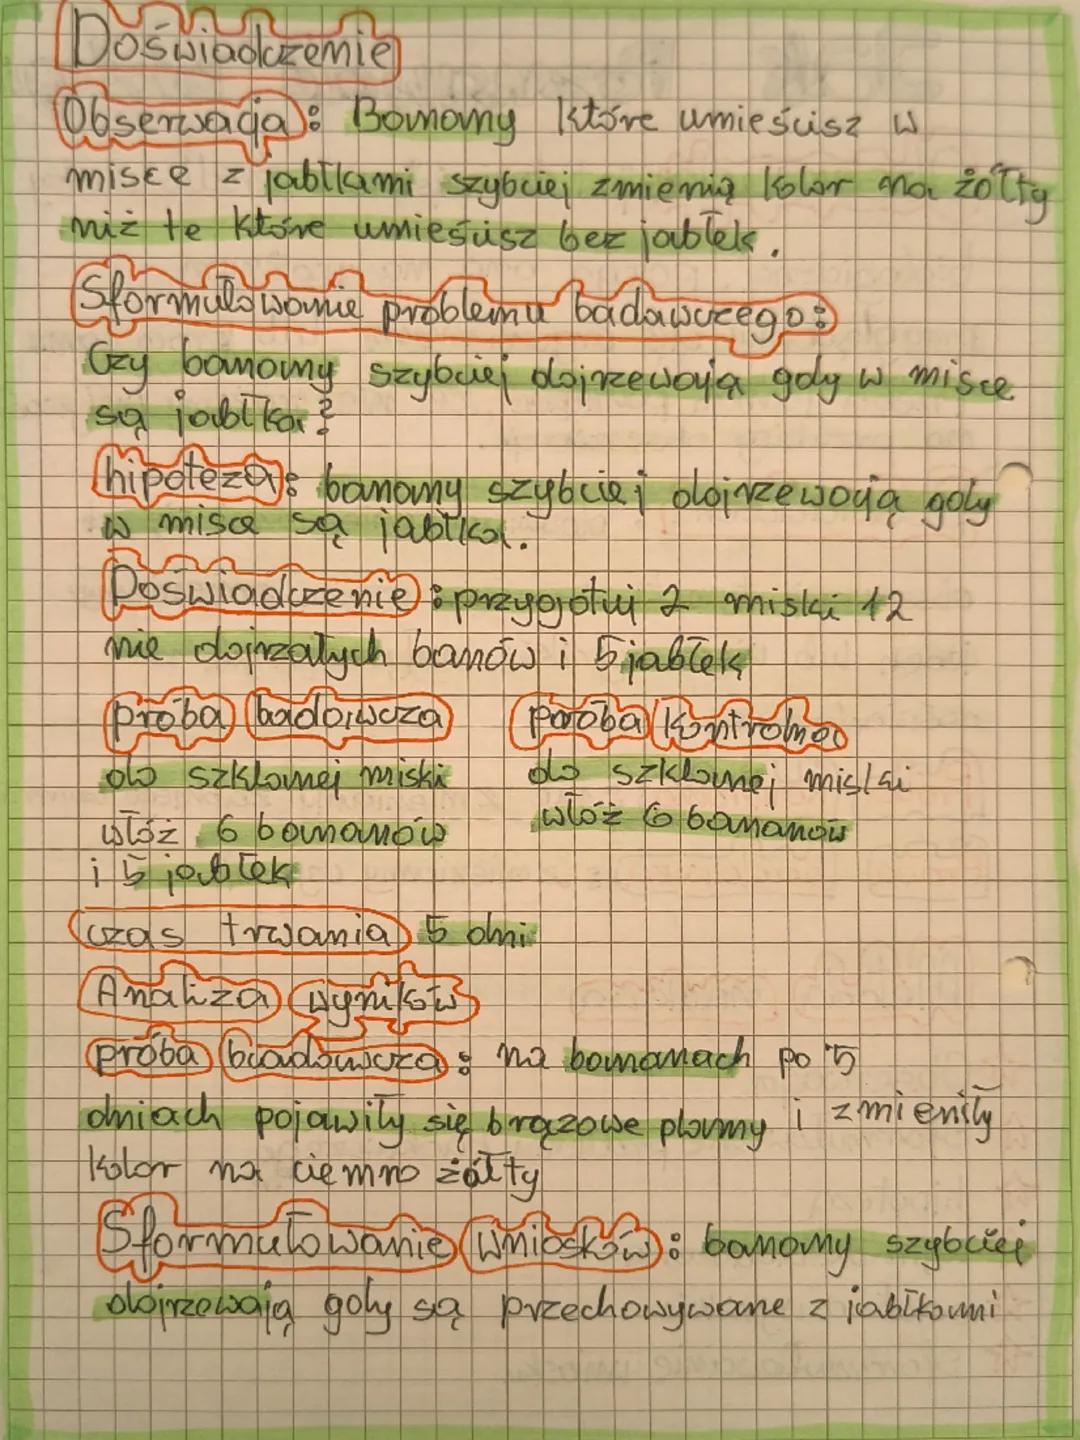 Doświadczenie
Obserwacja: Banany które umieścisz w
misce z jabłkami szybciej zmienią kolor na żółty
niż te które umieścisz bez jabłek.
Sformułowanie problemu badawczego:
Czy banany szybciej dojrzewają gdy w misce
są jabłka?
hipoteza: banany szybciej dojrzewają gdy
w misce są jabłka.
Doświadczenie: przygotuj 2 miski 12
nie dojrzałych banów i 5 jabłek
próba badawcza
próba kontrolna
do szklanej miski
włóż 6 bananów
i 5 jabłek
do szklanej miski
włóż 6 bananów
czas trwania 5 dni
Analiza wyników
próba badawcza: na bananach po 5
dniach pojawiły się brązowe plamy i zmieniły
kolor na ciemno żółty
Sformułowanie wniosków: banany szybciej
dojrzewają gdy są przechowywane z jabłkami